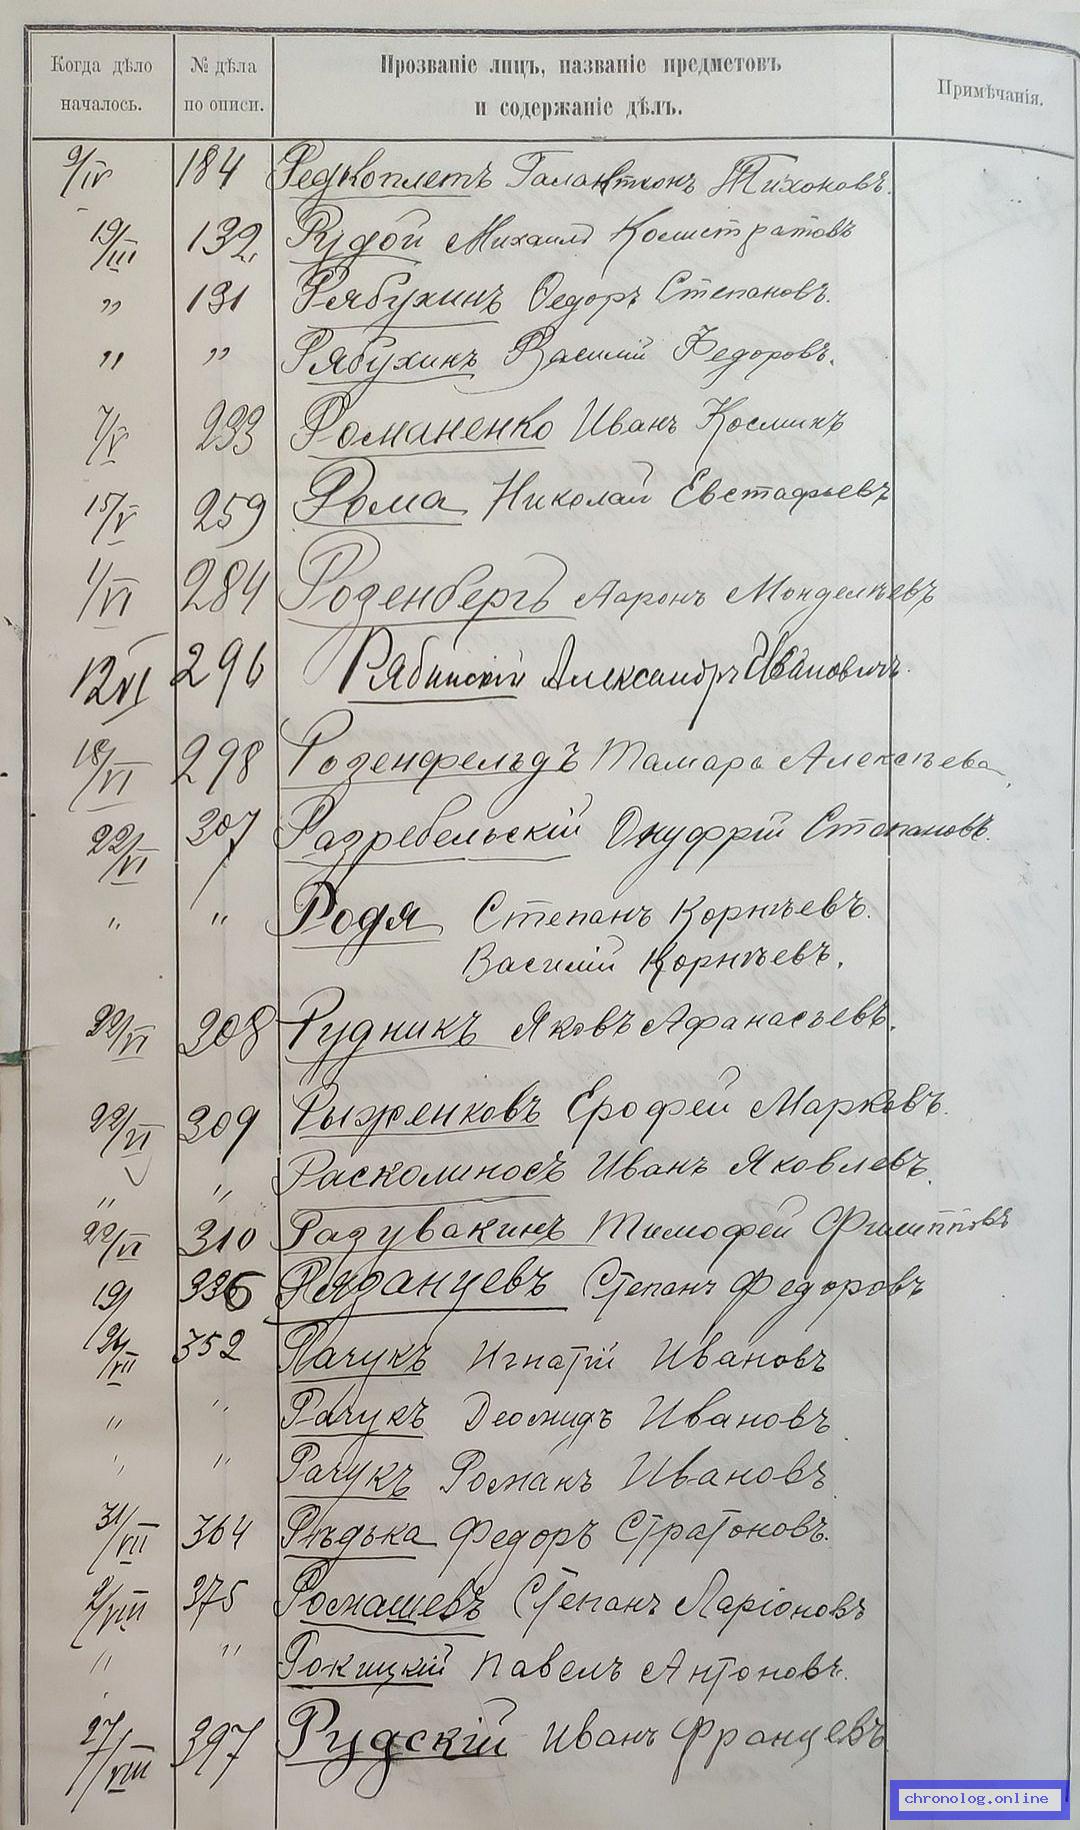 Когда дѣло началось.
№ дѣла по описи.
Прозваніе лицъ, названіе предметовъ
и содержаніе дѣлъ.
Примѣчанія.
9/IV 184 Редкоплетъ Галактіонъ Тихоновъ.
19/III 132. Рудой Михаилъ Калистратовъ
" 131 Рябухинъ Федоръ Степановъ.
" " Рябухинъ Василій Федоровъ.
7/V 233 Романенко Иванъ Косминъ
15/V 259 Рома Николай Евстафьевъ
1/VI 284 Розенбергъ Ааронъ Монделѣевъ
12/VI 296 Рябинскій Александръ Ивановичъ.
18/VI 298 Розенфельдъ Тамара Алексѣева
22/VI 307 Разребельскій Онуфрій Степановъ.
" " Родя Степанъ Корнѣевъ.
Василій Корнѣевъ.
22/VI 308 Рудникъ Яковъ Афанасьевъ.
22/VI 309 Рыженковъ Ерофей Марковъ.
" " Расколиносъ Иванъ Яковлевъ.
22/VI 310 Разувакинъ Тимофей Филипповъ
19/ 336 Рязанцевъ Степанъ Федоровъ
24/VII 352 Рачукъ Игнатій Ивановъ
" " Рачукъ Деомидъ Ивановъ
" " Рачукъ Романъ Ивановъ
31/VII 364 Рѣдька Федоръ Стратоновъ.
2/VIII 375 Ромашевъ Степанъ Ларіоновъ
" " Рокицкій Павелъ Антоновъ.
27/VIII 397 Рудскій Иванъ Францевъ
chronolog.online